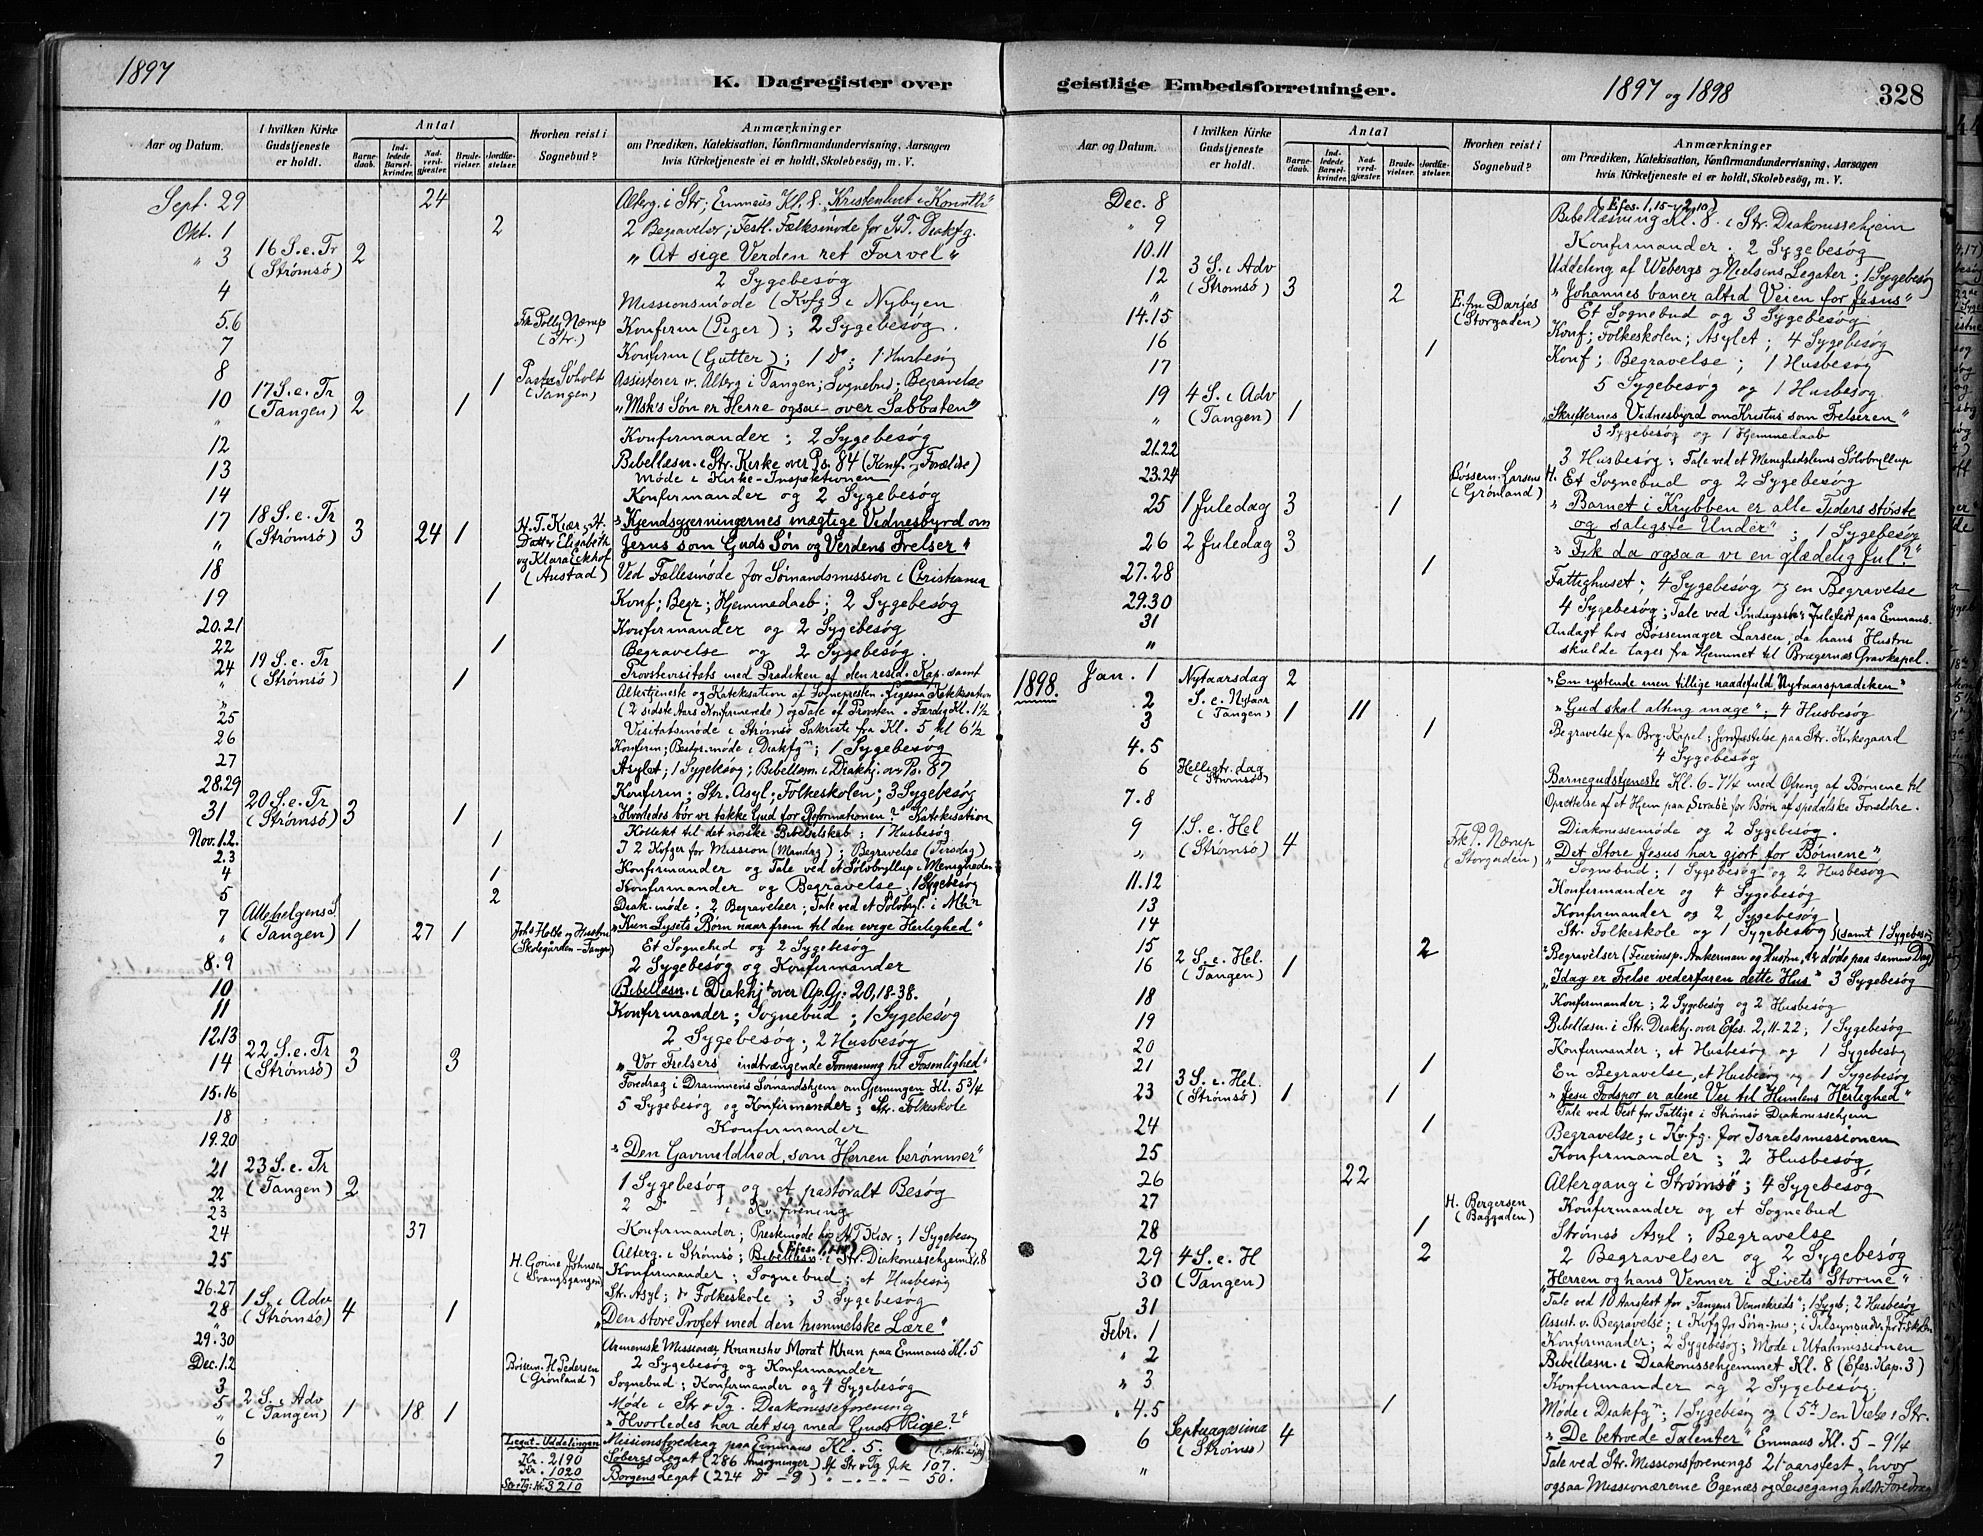 1897
K. Dagregister over
Aar og Datum.
I hvilken Kirke Gudstjeneste er holdt.
Antal
Barnedaab.
Indledede Barselkvinder.
Nadverdgjæster.
Brudevielser.
Jordfæstelser.
Hvorhen reist i Sognebud?
Anmærkninger
om Prædiken, Katekisation, Konfirmandundervisning, Aarsagen
hvis Kirketjeneste ei er holdt, Skolebesøg, m. V.
Sept. 29 24 Alterg. i Str; Emmaus Kl. 8. "Kristenlivet i Korinth"
Okt. 1 2 2 Begravelser; Festl. Fællesmøde for Diakfg.
" 3 16 S. e. Tr (Strømsø) 2 "At sige Verden ret Farvel"
2 Sygebesøg
4 Missionsmøde (Kvfg) i Nybyen
5.6 Frk Polly Nærup (Str.) Konfirm (Piger); 2 Sygebesøg.
7 Konfirm (Gutter); 1 Do; 1 Husbesøg
8 1 (Tangen) Assisterer v. Alterg i Tangen; Sognebud; Begravelse
10 17 S. e. Tr (Tangen) 2 1 "Msk's Søn er Herre ogsaa over Sabbaten"
12 Konfirmander; 2 Sygebesøg
13 Bibellæsn. i Str. Kirke over Ps. 84 (Konf. Forældre)
Møde i Kirke-Inspektionen
14 Konfirmander og 2 Sygebesøg
17 18 S. e. Tr (Strømsø) 3 24 1 H. T. Kiær, Datter Elisabeth og Klara Eckhof (Austad) "Kjendsgjerningernes mægtige Vidnesbyrd om
" Jesus som Guds Søn og Verdens Frelser"
18 Ved Fællesmøde for Sømandsmission i Christiania
19 1 Konf; Begr; Hjemmedaab; 2 Sygebesøg
20.21 Konfirmander og 2 Sygebesøg
22 1 Begravelse og 2 Sygebesøg.
24 19 S. e. Tr (Strømsø) 1 Provstevisitats med Prædiken af den resid. Kap. samt
" Altertjeneste og Kateksation af Sognepresten. Ligesaa Katekisation
" (2 sidste Aars Konfirmerede) og Tale af Provsten. Færdig Kl. 1½
25 Visitatsmøde i Strømsø Sakristi fra Kl. 5 til 6½
26 Konfirm; Bestyr.møde i Diakfgn; 1 Sygebesøg
27 Asylet; 1 Sygebesøg; Bibellæsn. i Diakhj. over Ps. 87
28.29 Konfirm; Str. Asyl; Folkeskolen; 3 Sygebesøg
31 20 S. e. Tr (Strømsø) 3 1 "Hvorledes bør vi takke Gud for Reformationen?" Katekisation
Kollekt til det norske Bibelselskab; 1 Husbesøg
Nov. 1.2. 1 I 2 Kvfger for Mission (Mandag); Begravelse (Tirsdag)
2.3 Konfirmander og Tale ved et Sølvbryllup i Menigheden
4 1 Konfirmander og Begravelse; 1 Sygebesøg
5 2 Diak. møde; 2 Begravelser; Tale ved et Sølvbryl. i Mhn
7 Allehelgens S. (Tangen) 1 27 1 Johs Holte og Hustru (Skolegården - Tangen) "Kun Lysets Børn naar frem til den evige Herlighed"
" Et Sognebud og 2 Sygebesøg
8.9 2 Sygebesøg og Konfirmander
10 Bibellæsn. i Diakhjt over Ap. Gj. 20, 18-38.
11 Konfirmander; Sognebud; 1 Sygebesøg
12.13 2 Sygebesøg; 2 Husbesøg
14 22 S. e. Tr (Strømsø) 3 3 "Vor Frelsers indtrængende Formaning til Forsonlighed"
Foredrag i Drammens Sømandshjem om Gjerningen Kl. 5¾
15.16 5 Sygebesøg og Konfirmander; Str. Folkeskole
18 Konfirmander
19.20
21 23 S. e. Tr (Tangen) 2 "Den Gavmildhed, som Herren berømmer"
22 1 Sygebesøg og et pastoralt Besøg
23 2 Do - i Kv.forening
24 37 Konfirmander; Prestemøde hos Kiær; 1 Sygebesøg
25 Alterg. i Strømsø; Bibellæsn. i Str. Diakonissehjem Kl. 8
H. Gorine Johnsen (Svangsgangen) Konfirmander; Sognebud; et Husbesøg
26.27 Str. Asyl; Folkeskole; 3 Sygebesøg
28 1 S. i Adv (Strømsø) 4 1 "Den store Profet med den himmelske Lære"
29.30 Armenisk Missionær Knanishu Morat Khan paa Emmaus Kl. 5
Dec. 1.2 2 Sygebesøg og Konfirmander
3 Bøssem. H Pedersen (Grønland) Sognebud; Konfirmander og 4 Sygebesøg
5 2 S. i Adv (Tangen) 1 18 1 Møde i Str o Tg. Diakonisseforening
" "Hvorledes har det sig med Guds Rige?"
6 Legat-Uddelingen Missionsforedrag paa Emmaus Kl. 5.
7 Kr. 2190 Søbergs Legat (286 Ansøgninger) 107.
Kr. 1020 Borgens Legat (224 Do - 9) 50.
Str Tg: Kr. 3210
geistlige Embedsforretninger.
1897 og 1898
328
Aar og Datum.
I hvilken Kirke Gudstjeneste er holdt.
Antal
Barnedaab.
Indledede Barselkvinder.
Nadverdgjæster.
Brudevielser.
Jordfæstelser.
Hvorhen reist i Sognebud?
Anmærkninger
om Prædiken, Katekisation, Konfirmandundervisning, Aarsagen
hvis Kirketjeneste ei er holdt, Skolebesøg, m. V.
(Efes. 1,15-2,10)
Dec. 8 Bibellæsning Kl. 8. i Str. Diakonissehjem
" 9 Konfirmander. 2 Sygebesøg
10.11 Uddeling af Webergs og Nielsens Legater; 1 Sygebesøg
12 3 S. i Adv (Strømsø) 3 2 "Johannes baner altid Veien for Jesus"
" E. fm Darjes (Storgaden) Et Sognebud og 3 Sygebesøg.
14.15 Konf; Folkeskolen; Asylet; 4 Sygebesøg
16 1 Konf; Begravelse; 1 Husbesøg
17 5 Sygebesøg og 1 Husbesøg
19 4 S. i Adv (Tangen) 1 "Skrifternes Vidnesbyrd om Kristus som Frelseren"
" 3 Sygebesøg og 1 Hjemmedaab
21.22 3 Husbesøg; Tale ved et Menighedslems Sølvbryllup
23.24 Bøssem. Larsens H. (Grønland) Et Sognebud og 2 Sygebesøg
25 1 Juledag 3 1 "Barnet i Krybben er alle Tiders største
og saligste Under"; 1 Sygebesøg
26 2 Juledag 3 "Fik da ogsaa vi en glædelig Jul?"
27.28 1 Fattighuset; 4 Sygebesøg og en Begravelse
29.30 4 Sygebesøg; Tale ved Søndagssk's Julefest paa Emmaus.
31 Andagt hos Bøssemager Larsen, da hans Hustru
" skulde tages fra Hjemmet til Bragernæs Gravkapel.
1898. Jan. 1 Nytaarsdag 2 "En rystende men tillige naadefuld Nytaarsprædiken"
2 S. e. Nytaar (Tangen) 1 11 "Gud skal alting mage"; 4 Husbesøg
3 1 Begravelse fra Brg. Kapel; Jordfæstelse paa Str. Kirkegaard
4.5 4 Sygebesøg
6 Helligtr. dag (Strømsø) Barnegudstjeneste Kl. 6-7¼ med Ofring af Børnene til
7.8 Oprettelse af et Hjem paa for Børn af spedalske Forældre.
9 1 S. e. Hel (Strømsø) 4 Diakonissemøde og 2 Sygebesøg.
" Frk P. Nærup (Storgaden) "Det Store Jesus har gjort for Børnene"
Sognebud; 1 Sygebesøg og 2 Husbesøg
11.12 Konfirmander og 4 Sygebesøg
13 Konfirmander og 2 Sygebesøg
14 Str. Folkeskole og 1 Sygebesøg (samt 1 Sygebesøg
15 2 2 Begravelser (Feierinsp. Ankerman og Hustru, der døde paa samme Dag)
16 2 S. e. Hel. (Tangen) 1 "Idag er Frelse vederfaren dette Hus" 3 Sygebesøg
18 Konfirmander; 2 Sygebesøg og 2 Husbesøg
19 Bibellæsn. i Str. Diakhj. over Efes. 2, 11-22; 1 Sygebesøg
20 Konfirmander; et Husbesøg og 1 Sygebesøg
21 1 En Begravelse, et Husbesøg og 1 Sygebesøg
23 3 S. e. Hel. (Strømsø) 1 1 "Jesu Fodspor er alene Vei til Himlens Herlighed"
Tale ved Fest for Fattige i Strømsø Diakonissehjem
24 1 Begravelse; i Kvfg. for Israelsmissionen
25 Konfirmander; 2 Husbesøg
26 22 Altergang i Strømsø; 4 Sygebesøg
27 H. Bergersen (Baggaden) Konfirmander og et Sognebud
28 1 Strømsø Asyl; Begravelse
29 4 S. e. H 2 2 Begravelser og 2 Sygebesøg
30 (Tangen) "Herren og hans Venner i Livets Storme"
31 Tale ved 10 Aarsfest for "Tangens Vennekreds"; 1 Sygeb; 2 Husbesøg
Febr. 1 Assist. v. Begravelse; i Kvfg for Søm-mis; i Tilsynsudv. for
" 2 Konfirmander; 2 Sygebesøg; Møde i Utahmissionen
Bibellæsn. i Diakonissehjemmet Kl. 8 (Efes. Kap. 3)
" 3 Konfirmander og 2 Sygebesøg;
" 4.5 1 Møde i Diakfgn; 1 Sygebesøg og (5te) en Vielse i Str.
6 Septuagesima (Strømsø) 4 "De betroede Talenter" Emmaus Kl. 5 - 9¼
" Tale ved Str. Missionsforenings 21 aarsfest, hvor
ogsaa Missionærerne Egenæs og Leisegang holdt Foredrag